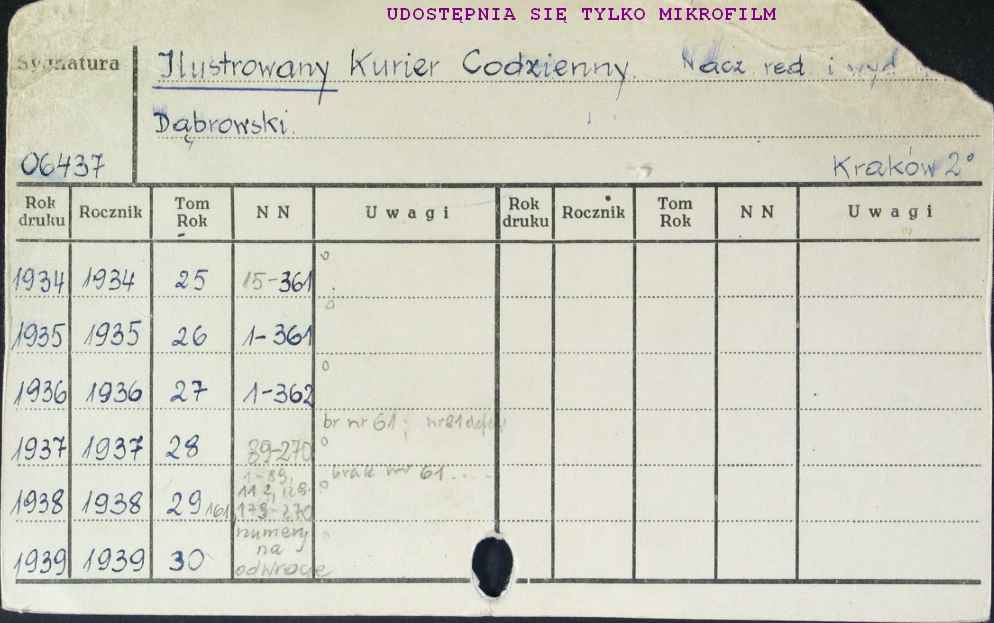 UDOSTĘPNIA SIĘ TYLKO MIKROFILM
Sygnatura Ilustrowany Kurier Codzienny. Nacz red. i wyd
Dąbrowski.
06437 Kraków 2°
Rok druku Rocznik Tom Rok N N Uwagi Rok druku Rocznik Tom Rok N N Uwagi
1934 1934 25 15-361
1935 1935 26 1-361
1936 1936 27 1-362
br nr 61; nr 81
1937 1937 28 89-270
brak nr 61....
1938 1938 29 161, 179-270
1939 1939 30 numery na odwrocie